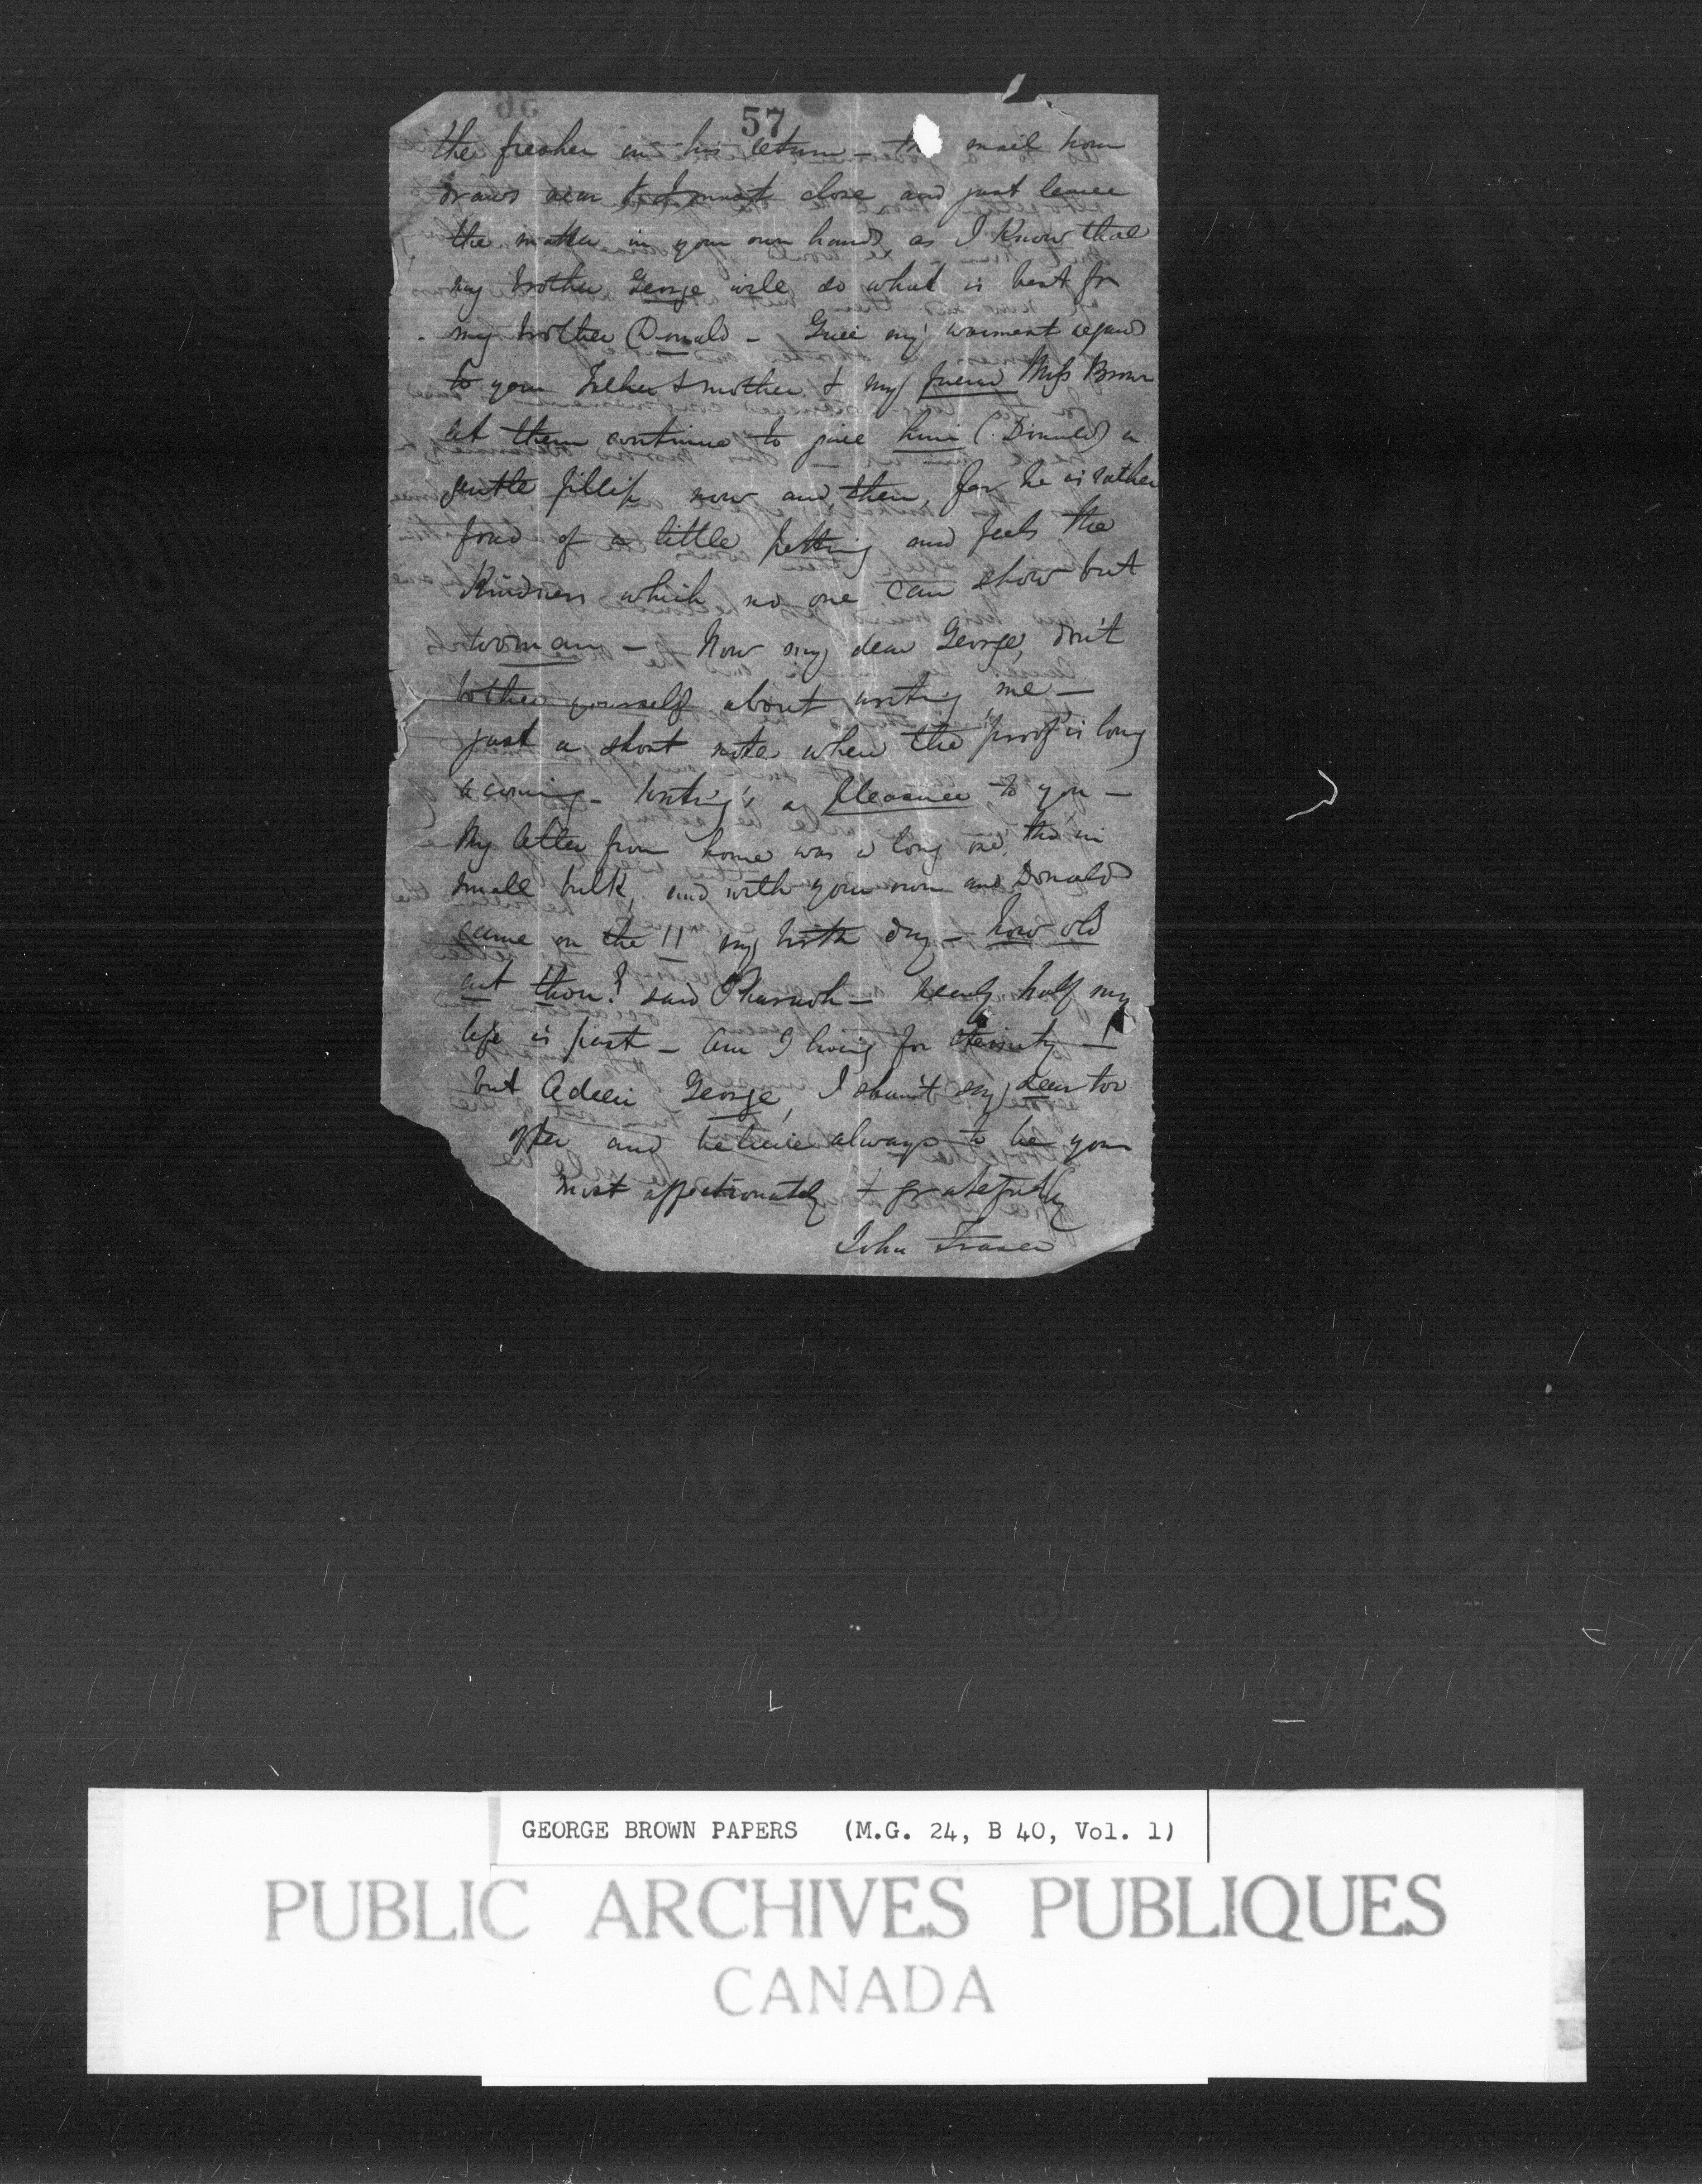 57
the fresher on his return - the mail hour
draws near & I must close and just leave
the matter in your own hands as I know that
my brother George will do what is best for
my brother Donald - Give my warmest regards
to your Father & mother & my friend Miss Brown
let them continue to give him (Donald) a
gentle fillip now and then, for he is rather
fond of a little petting and feels the
Kindness which no one can show but
woman - Now my dear George, don't
bother yourself about writing me -
just a short note when the "proof" is long
a coming - writing's a pleasure to you -
My letter from home was a long one, tho in
small bulk, and with your own and Donald's
came on the 11 my birth day - how old
art thou? said Pharaoh - Nearly half my
life is past - am I living for eternity - !
but Adieu George, I shan't say dear too
often and believe always to be your
most affectionately & gratefully
John Fraser
GEORGE BROWN PAPERS (M.G. 24, B 40, Vol. 1)
PUBLIC ARCHIVES PUBLIQUES
CANADA